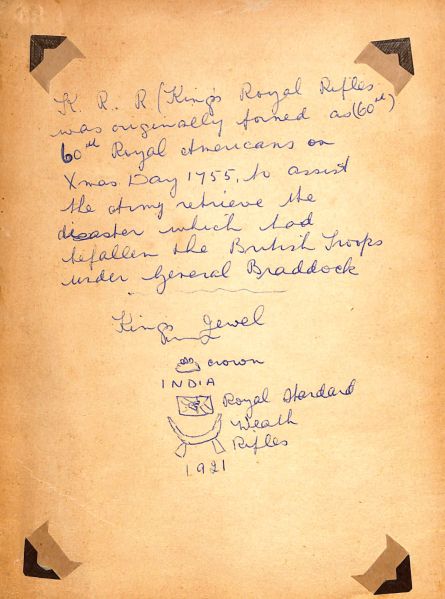 K. R. R (King's Royal Rifles
was originally formed as (60th)
60th Royal Americans on
Xmas Day 1755, to assist
the Army retrieve the
disaster which had
befallen the British Troops
under General Braddock
King's Jewel
crown
INDIA
Royal Standard
Weath
Rifles
1921